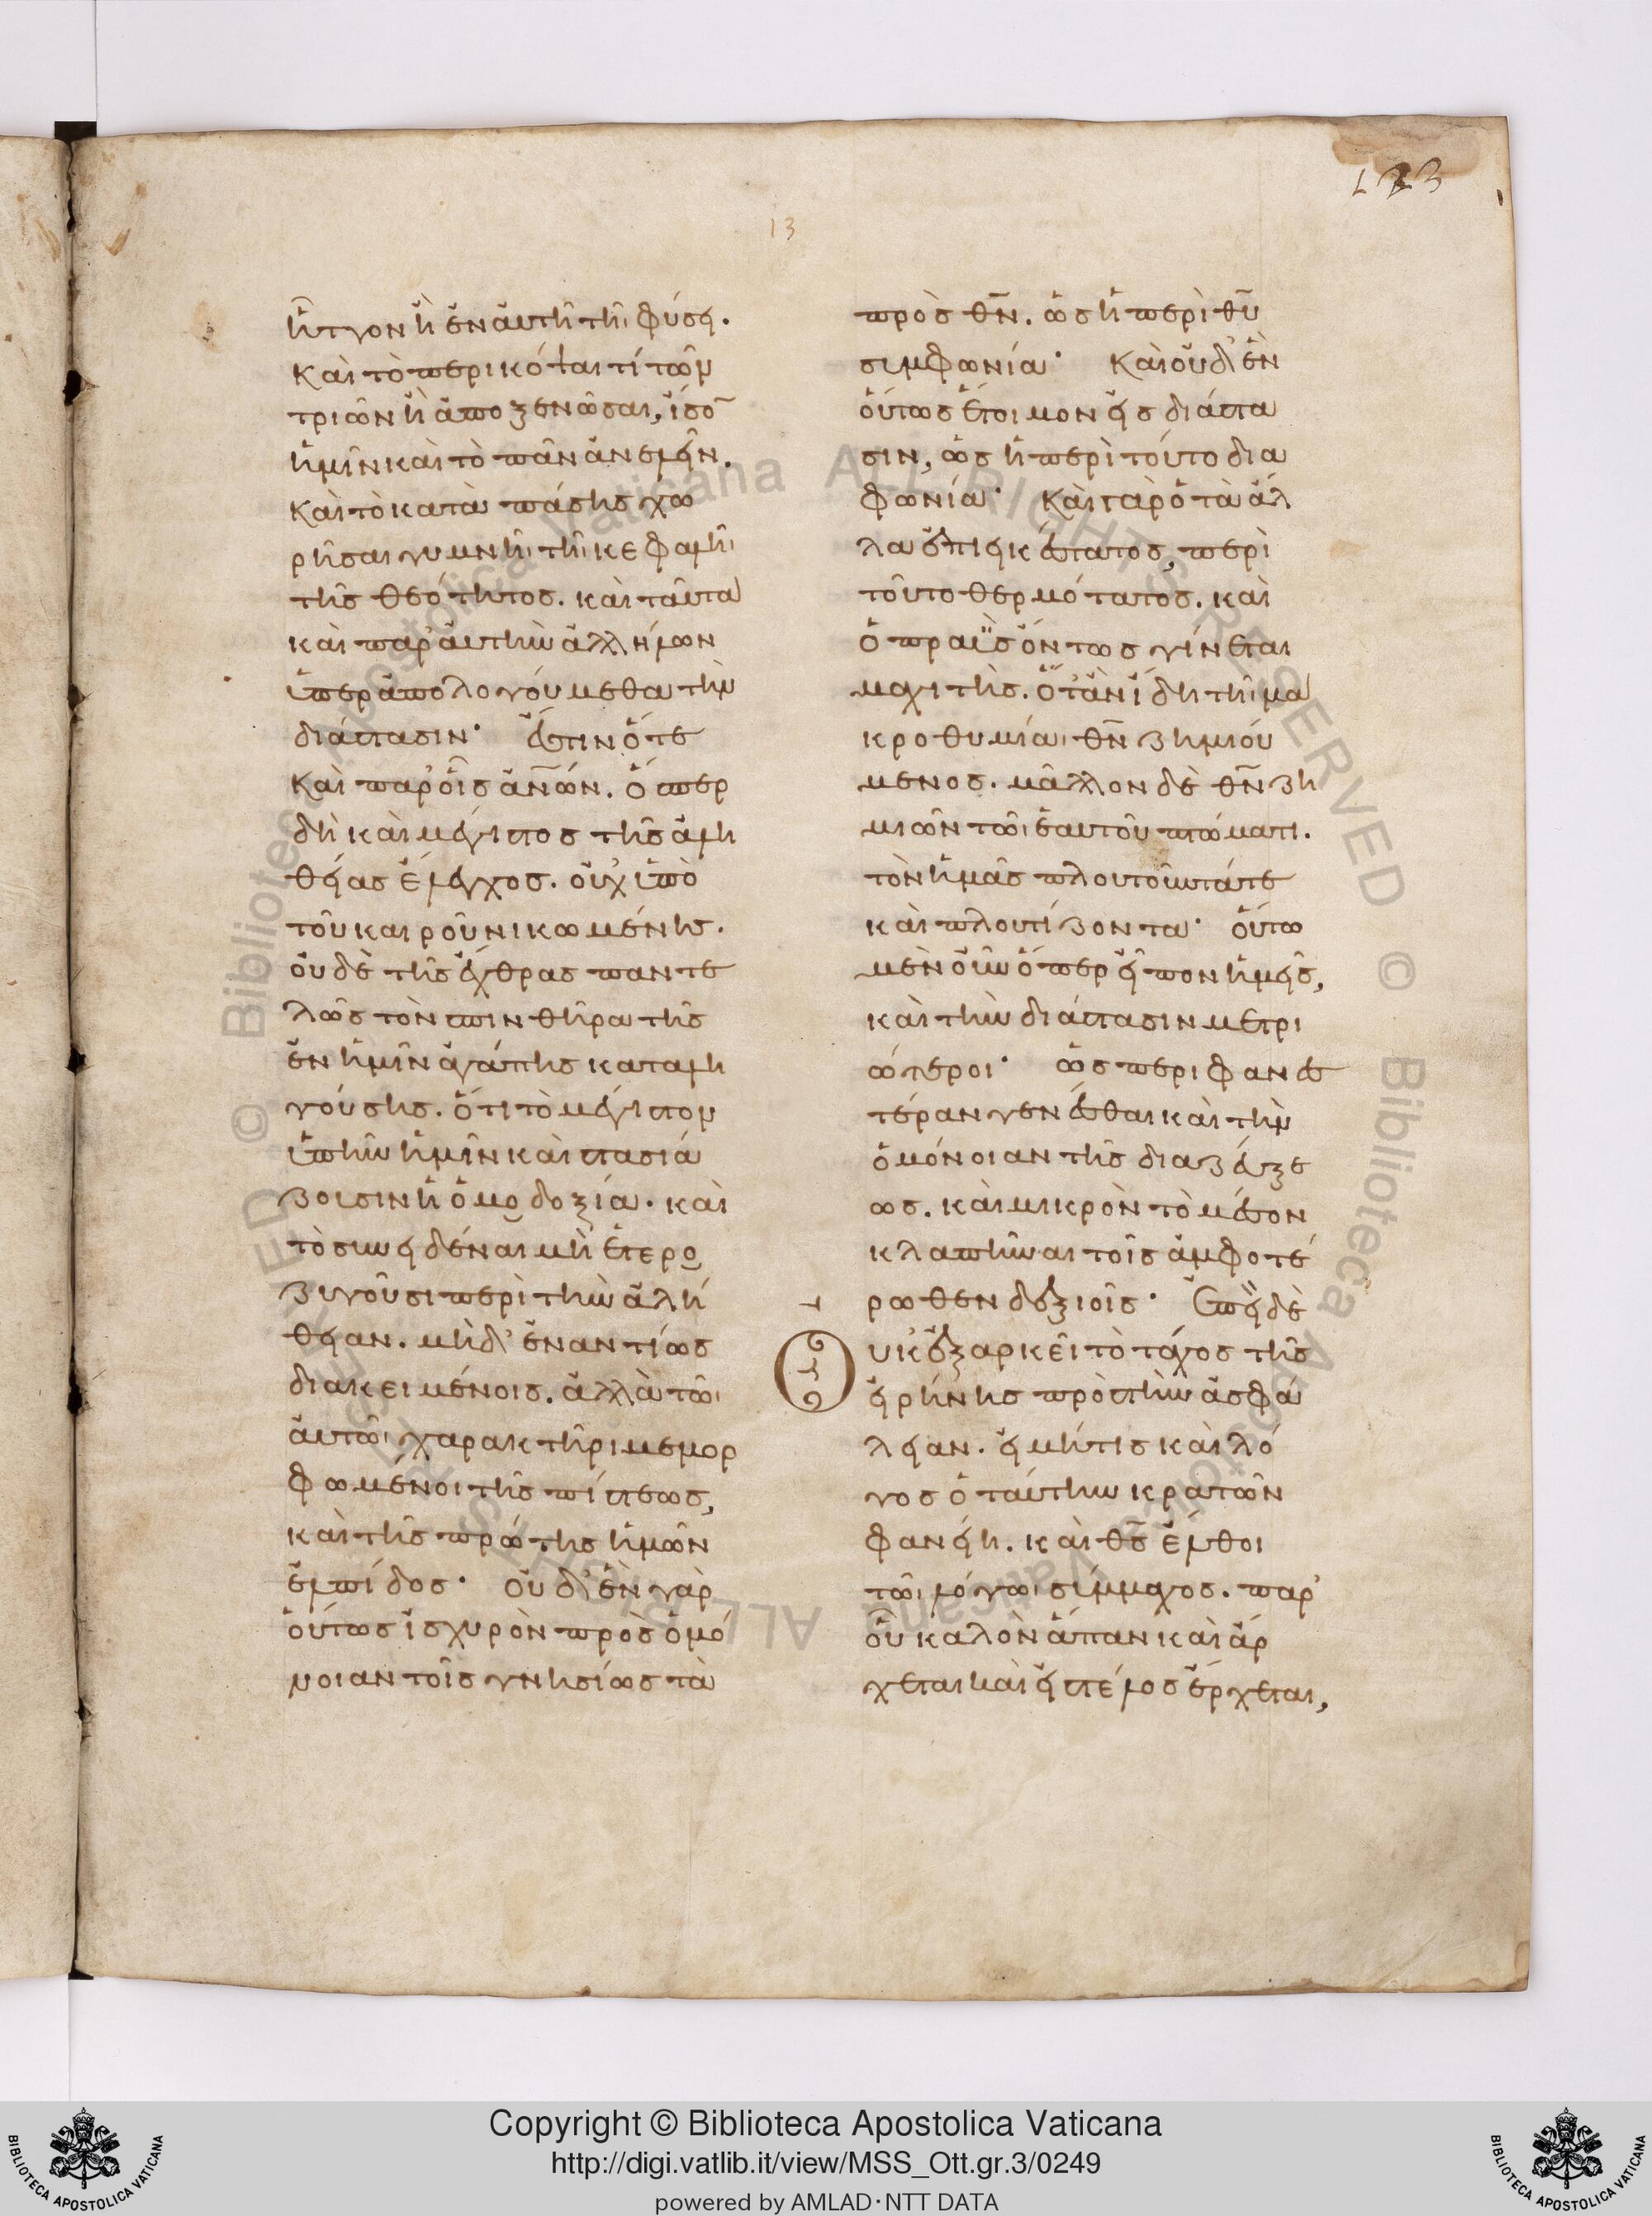 ἧττον ἢ ἐν αὐτῆ τῆι φύσει.
καὶ τὸ περικόψαι τί τῶν
τριῶν ἢ ἀποξενῶσαι, ἴσο̄
ἡμῖν καὶ τὸ πᾶν ἀνελεῖν.
καὶ τὸ κατὰ πάσης χω
ρῆσαι γυμνῆι τῆι κεφαλῆι
τῆς θεότητος. καὶ ταῦτα
καὶ παρ' αὐτὴν ἀλλήλων
ὑπεραπολογούμεθα τὴν
διάστασιν· ἔστιν ὅτε
καὶ παρ' οἷς ἀν̅ῶν. ὅπερ
δὴ καὶ μέγιστος τῆς ἀλη
θείας ἔλεγχος. οὐχ' ὑπὸ
τοῦ καιροῦ νικωμένης.
οὐδὲ τῆς ἔχθρας παντε
λῶς τὸν σπινθῆρα τῆς
ἐν ἡμῖν ἀγάπης καταλη
γούσης. ὅτι τὸ μέγιστον
ὑπῆν ἡμῖν καὶ στασιά
ζουσιν ἡ ὁμοδοξία. καὶ
τὸ συνειδέναι μὴ ἑτερο
ζυγοῦσι περὶ τὴν ἀλή
θειαν. μὴδ' ἐναντίως
διακειμένοις. ἀλλὰ τῶι
αὐτῶι χαρακτῆρι μεμορ
φωμένοι τῆς πίστεως,
καὶ τῆς πρώτης ἡμῶν
ἐλπίδος· οὐδ' ἓν γὰρ
οὕτως ἰσχυρὸν πρὸς ὁμό
νοιαν τοῖς γνησίως τὰ
πρὸς θ̅ν̅. ὡς ἡ περὶ θ̅υ̅
συμφωνία· καὶ οὐδ' ἓν
οὕτως ἕτοιμον εἰς διάστα
σιν, ὡς ἡ περὶ τούτο δια
φωνία· καὶ γὰρ ὁ τὰ ἄλ
λα ἐπιεικέστατος, περὶ
τοῦτο θερμότατος. καὶ
ὁ πραῢς ὄντως γίνεται
μαχιτὴς. ὅτ' ἂν ἴδη τῆι μα
κροθυμία θ̅ν̅ ζημιού
μενος. μᾶλλον δὲ θ̅ν̅ ζη
μιῶν τῶι ἑαυτοῦ πτώματι.
τὸν ἡμᾶς πλουτοῦντά τε
καὶ πλουτίζοντα· οὕτω
μὲν οὖν ὅπερ εἶπον ἡμεῖς,
καὶ τὴν διάστασιν μετρι
ώτεροι· ὡς περιφανεσ
τέραν γενέσθαι καὶ τὴν
ὁμόνοιαν τῆς διαζεύξε
ως. καὶ μικρὸν τὸ μέσον
κλαπῆναι τοῖς ἀμφοτέ
ρωθεν δεξιοῖς· Ἐπεὶ δὲ
Ουκ' ἐξαρκεῖ τὸ τάχος τῆς
εἰρήνης πρὸς τὴν ἀσφά
λειαν. εἰ μήτις καὶ λό
γος ὁ ταύτην κρατῶν
φανείη. καὶ θ̅ς̅ ἔλθοι
τῶι λόγωι σύμμαχος. παρ'
οὗ καλὸν ἅπαν καὶ ἄρ
χεται καὶ εἰς τέλος ἔρχεται,
13
123
Copyright © Biblioteca Apostolica Vaticana
http://digi.vatlib.it/view/MSS_Ott.gr.3/0249
powered by AMLAD・NTT DATA